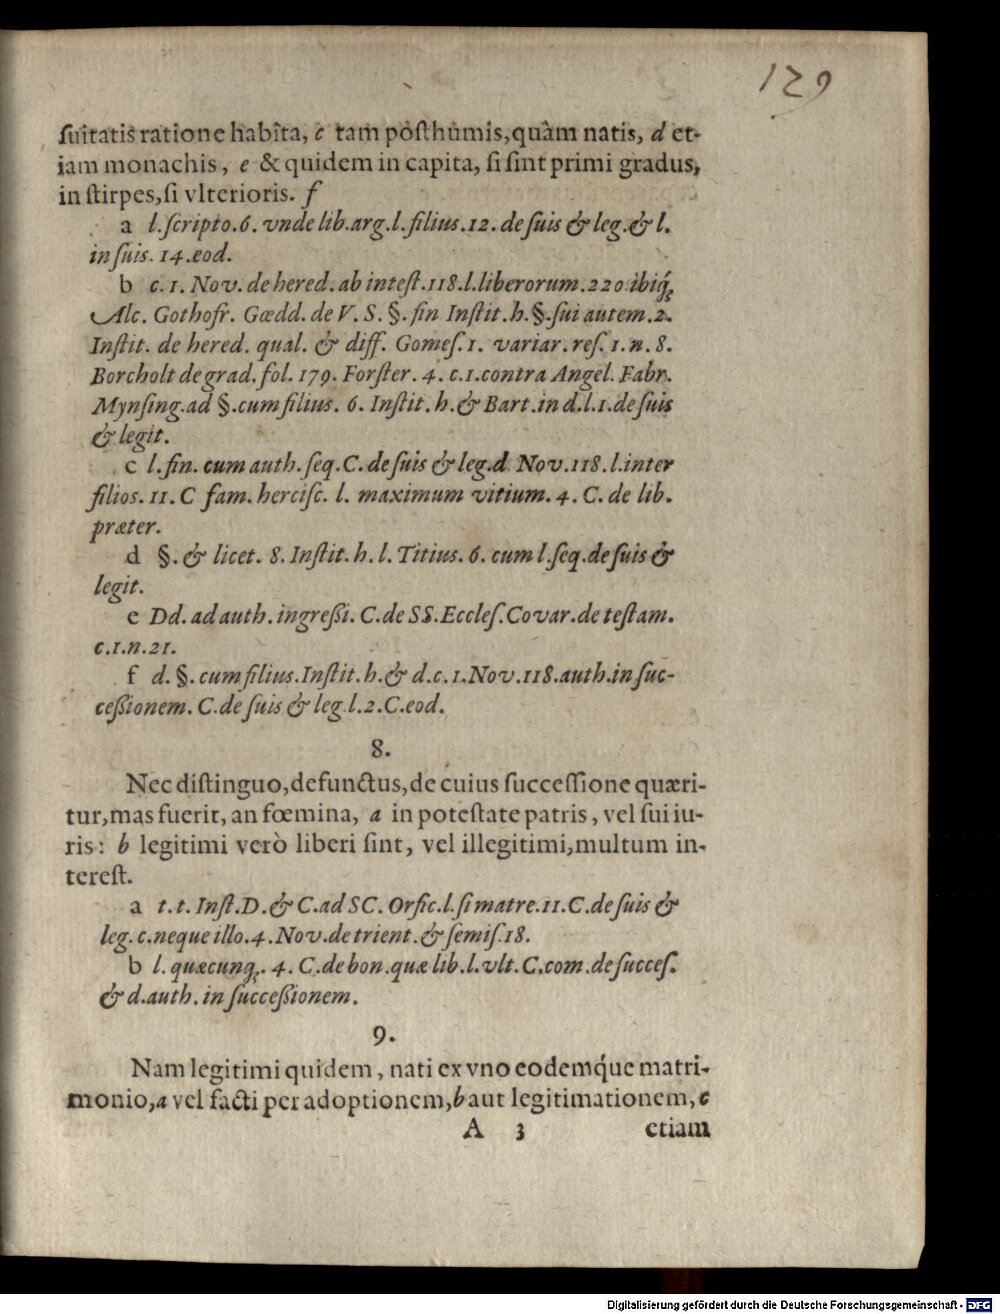 129
ſuitatis ratione habita, c tam poſthumis, quàm natis, d et-
iam monachis, e & quidem in capita, ſi ſint primi gradus,
in ſtirpes, ſi vlterioris. f
a l. ſcripto. 6. vnde lib. arg. l. filius. 12. de ſuis & leg. & l.
in ſuis. 14. eod.
b c. 1. Nov. de hered. ab inteſt. 118. l. liberorum. 220. ibiq́;
Alc. Gothofr. Gœdd. de V. S. §. fin Inſtit. h. §. ſui autem. 2.
Inſtit. de hered. qual. & diff. Gomeſ. 1. variar. reſ. 1. n. 8.
Borcholt de grad. fol. 179. Forſter. 4. c. 1. contra Angel. Fabr.
Mynſing. ad §. cum filius. 6. Inſtit. h. & Bart. in d. l. 1. de ſuis
& legit.
c l. fin. cum auth. ſeq. C. de ſuis & leg. d Nov. 118. l. inter
filios. 11. C fam. herciſc. l. maximum vitium. 4. C. de lib.
præter.
d §. & licet. 8. Inſtit. h. l. Titius. 6. cum l. ſeq. de ſuis &
legit.
e Dd. ad auth. ingreſſi. C. de SS. Eccleſ. Covar. de teſtam.
c. 1. n. 21.
f d. §. cum filius. Inſtit. h. & d. c. 1. Nov. 118. auth. in ſuc-
ceſſionem. C. de ſuis & leg l. 2. C. eod.
8.
Nec diſtinguo, defunctus, de cuius ſucceſſione quæri-
tur, mas fuerit, an fœmina, a in poteſtate patris, vel ſui iu-
ris: b legitimi verò liberi ſint, vel illegitimi, multum in-
tereſt.
a t. t. Inſt. D. & C. ad SC. Orfic. l. ſi matre. 11. C. de ſuis &
leg. c. neque illo. 4. Nov. de trient. & ſemiſ. 18.
b l. quæcunq;. 4. C. de bon. quæ lib. l. vlt. C. com. de ſucceſ.
& d. auth. in ſucceſſionem.
9.
Nam legitimi quidem, nati ex vno eodemq́ue matri-
monio, a vel facti per adoptionem, b aut legitimationem, c
A 3 etiam
Digitalisierung gefördert durch die Deutsche Forschungsgemeinschaft - DFG